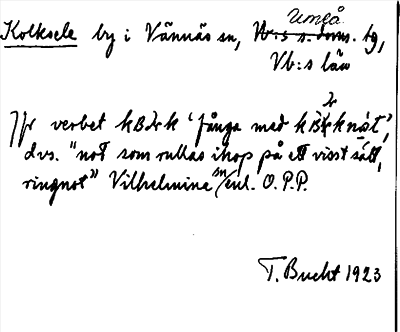 Umeå
Kolksele by i Vännäs sn, V:s s. doms. tg,
Vb:s län
Jfr verbet 'fånga med
dvs. "not som rullas ihop på ett visst sätt,
ringnot" Vilhelmina sn enl. O.P.P.
T. Bucht 1923